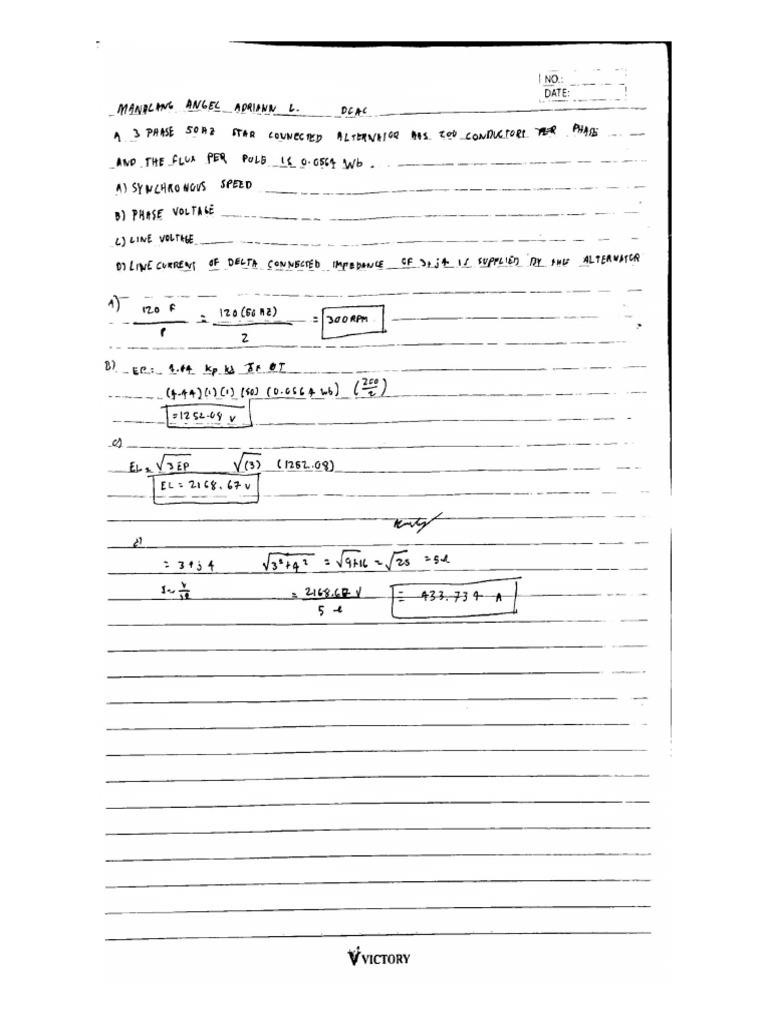 NO.:
DATE:
MANALANG ANGEL ADRIANN L. DCAC
A 3 PHASE 50HZ STAR CONNECTED ALTERNATOR HAS 200 CONDUCTORS PER PHASE
AND THE FLUX PER POLE IS 0.0564 Wb.
A) SYNCHRONOUS SPEED
B) PHASE VOLTAGE
C) LINE VOLTAGE
D) LINE CURRENT OF DELTA CONNECTED IMPEDANCE OF 3+j4 IS SUPPLIED BY THE ALTERNATOR
A) 120 F / P = 120(50 HZ) / 2 = 300 RPM
B) EP= 4.44 Kp Kd F ΦT
(4.44)(1)(1)(50)(0.0564 Wb) (200/2)
=1252.08 V
C)
EL=√3EP √(3) (1252.08)
EL = 2168.67 V
d)
= 3+j4 √3²+4² = √9+16 = √25 = 5
= 2168.67 V / 5 = 433.734 A
VICTORY